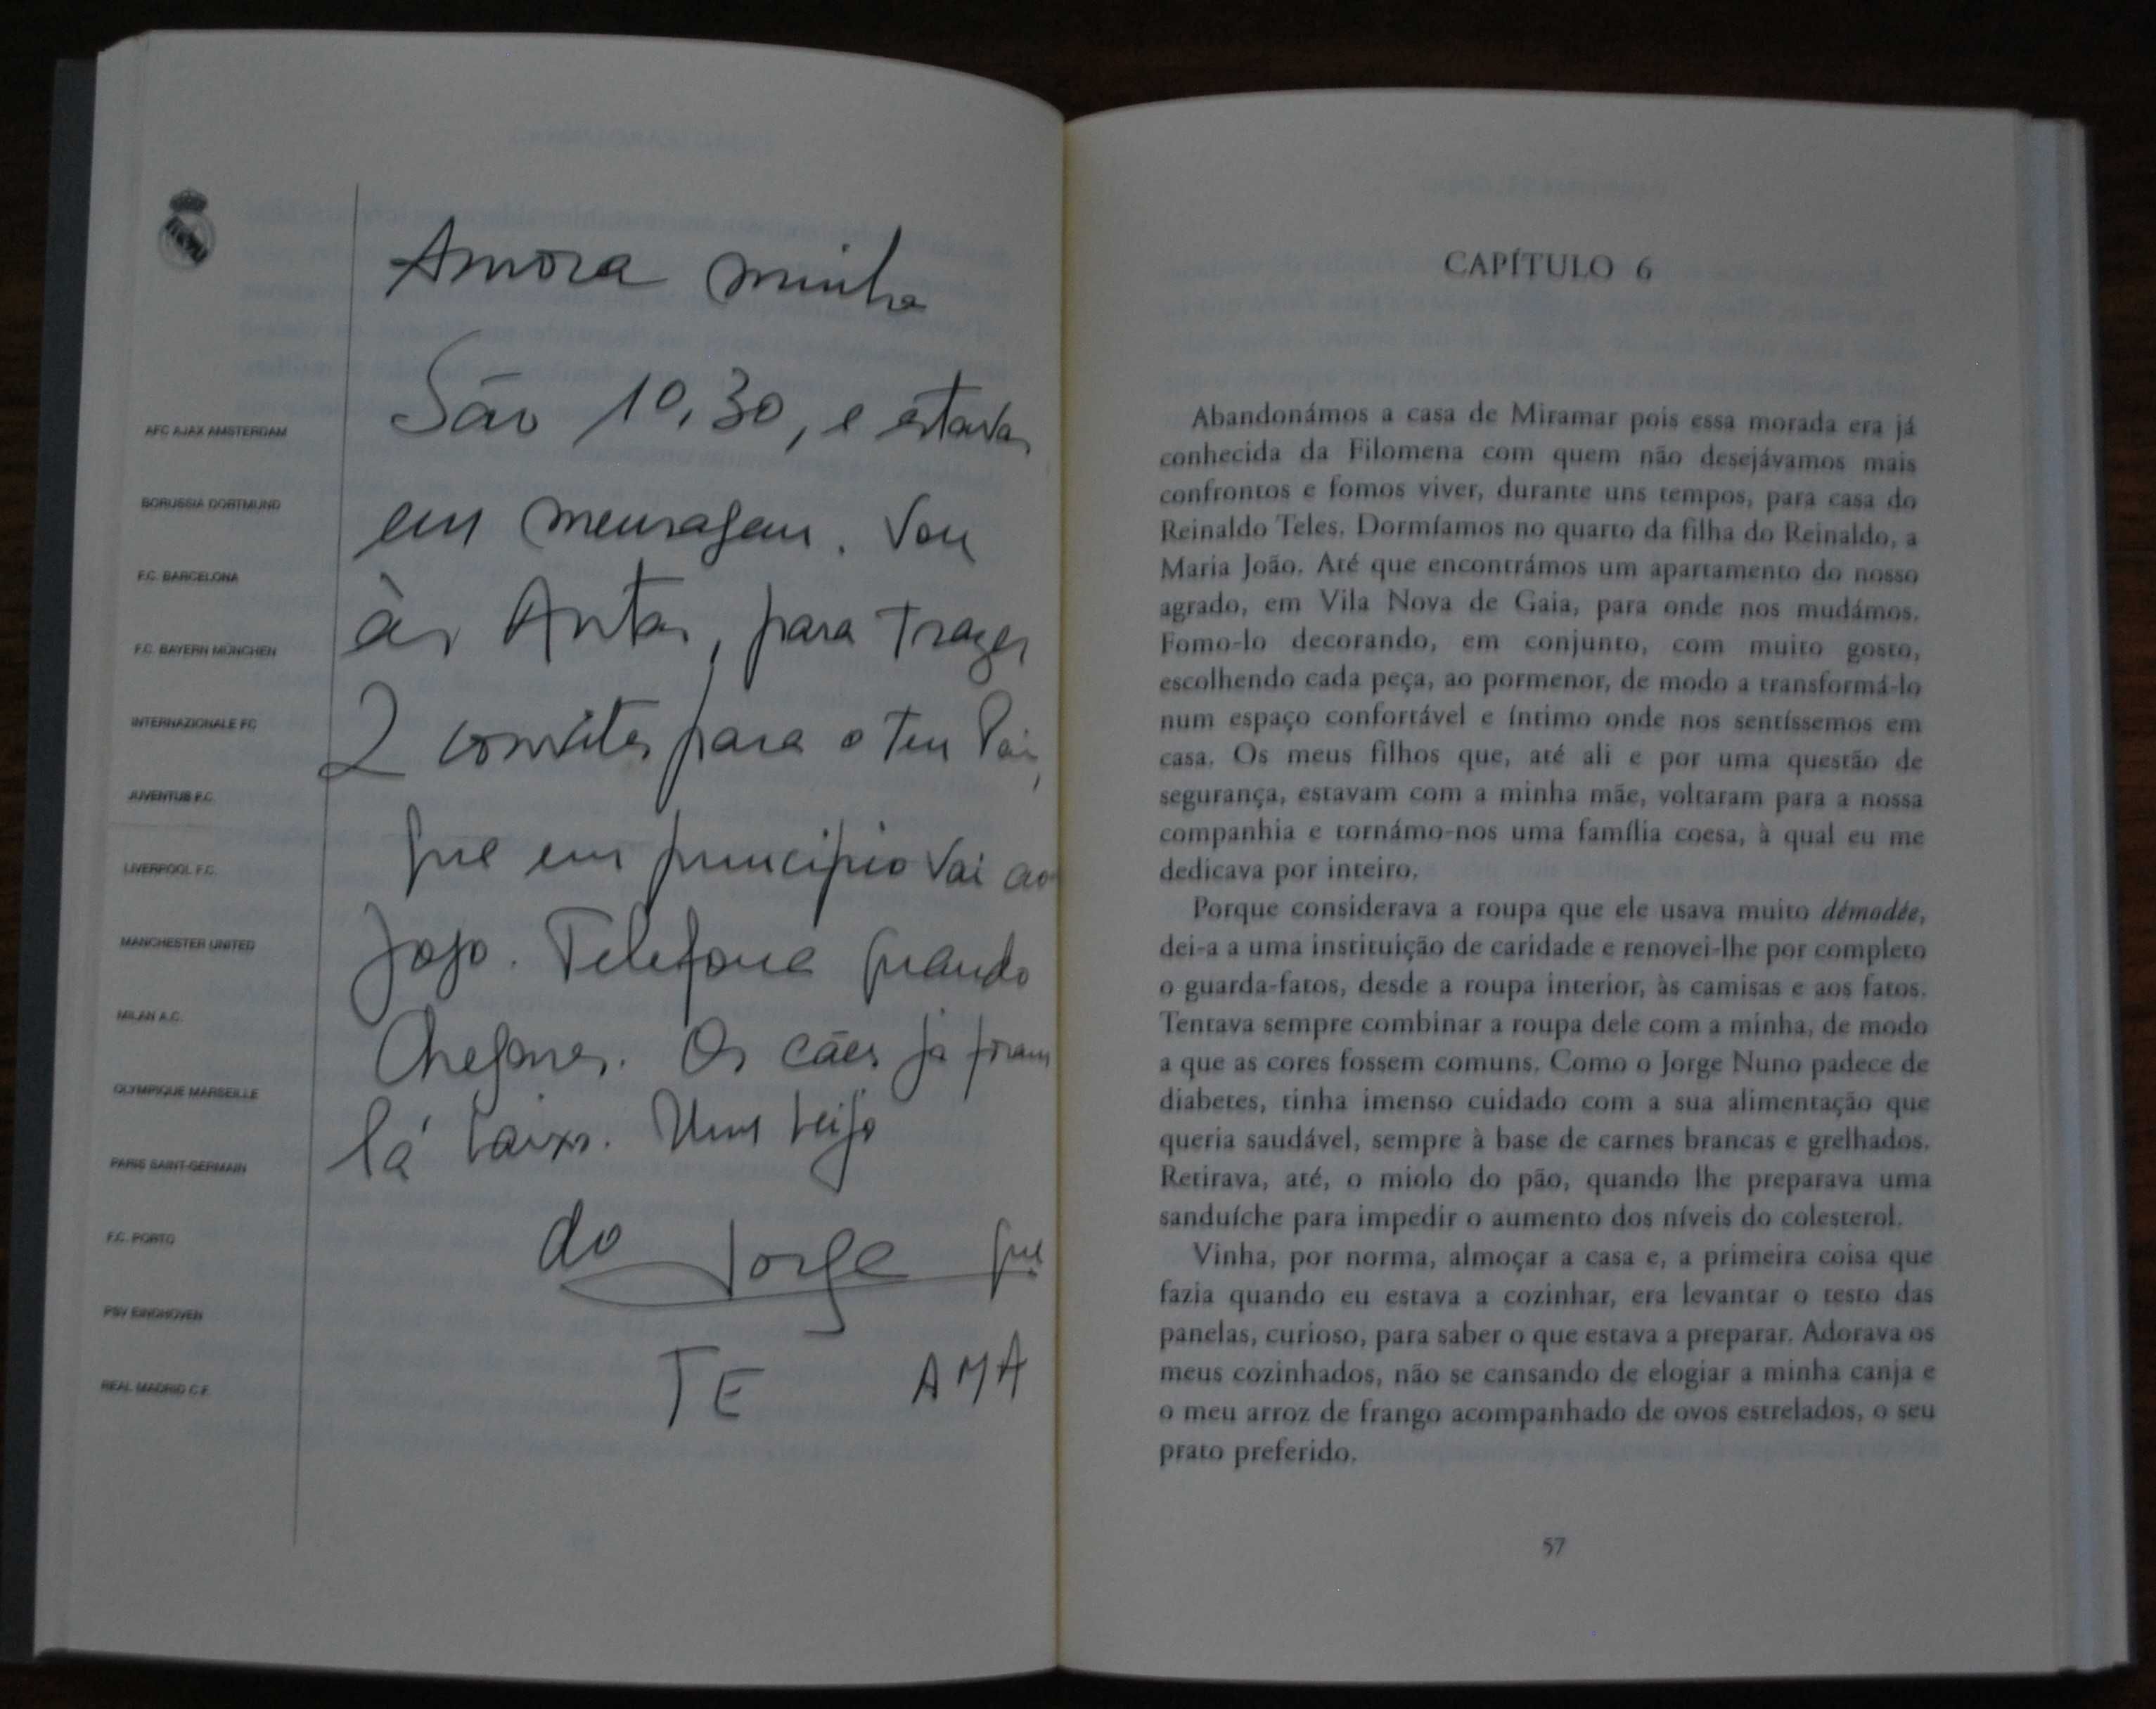 Amora minha
São 10,30, e estavas
em mensagem. Vou
às Antas, para trazer
2 convites para o teu Pai,
que em principio vai ao
jogo. Telefona quando
chegares. Os cães já foram
lá baixo. Um beijo
do Jorge que
TE AMA
AFC AJAX AMSTERDAM
BORUSSIA DORTMUND
F.C. BARCELONA
F.C. BAYERN MÜNCHEN
INTERNAZIONALE FC
JUVENTUS F.C.
LIVERPOOL F.C.
MANCHESTER UNITED
MILAN A.C.
OLYMPIQUE MARSEILLE
PARIS SAINT-GERMAIN
F.C. PORTO
PSV EINDHOVEN
REAL MADRID C.F.
CAPÍTULO 6
Abandonámos a casa de Miramar pois essa morada era já
conhecida da Filomena com quem não desejávamos mais
confrontos e fomos viver, durante uns tempos, para casa do
Reinaldo Teles. Dormíamos no quarto da filha do Reinaldo, a
Maria João. Até que encontrámos um apartamento do nosso
agrado, em Vila Nova de Gaia, para onde nos mudámos.
Fomo-lo decorando, em conjunto, com muito gosto,
escolhendo cada peça, ao pormenor, de modo a transformá-lo
num espaço confortável e íntimo onde nos sentíssemos em
casa. Os meus filhos que, até ali e por uma questão de
segurança, estavam com a minha mãe, voltaram para a nossa
companhia e tornámo-nos uma família coesa, à qual eu me
dedicava por inteiro.
Porque considerava a roupa que ele usava muito démodée,
dei-a a uma instituição de caridade e renovei-lhe por completo
o guarda-fatos, desde a roupa interior, às camisas e aos fatos.
Tentava sempre combinar a roupa dele com a minha, de modo
a que as cores fossem comuns. Como o Jorge Nuno padece de
diabetes, tinha imenso cuidado com a sua alimentação que
queria saudável, sempre à base de carnes brancas e grelhados.
Retirava, até, o miolo do pão, quando lhe preparava uma
sanduíche para impedir o aumento dos níveis do colesterol.
Vinha, por norma, almoçar a casa e, a primeira coisa que
fazia quando eu estava a cozinhar, era levantar o testo das
panelas, curioso, para saber o que estava a preparar. Adorava os
meus cozinhados, não se cansando de elogiar a minha canja e
o meu arroz de frango acompanhado de ovos estrelados, o seu
prato preferido.
57